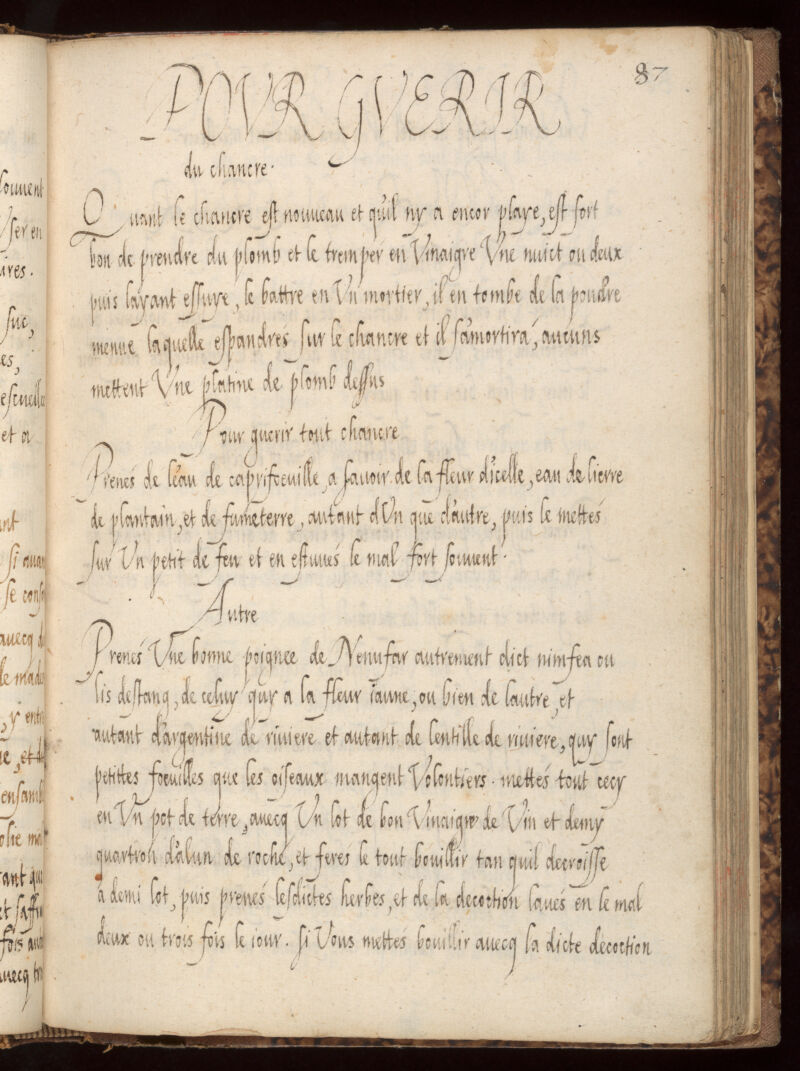 87
POVR GVERIR
du chancre.
Quant le chancre est nouueau et qu'il ny a encor playe, est fort
bon de prendre du plomb et le tremper en Vinaigre Vne nuict ou deux
puis layant essuye, le battre en Vn mortier, il en tombe de la poudre
menue laquelle espandres sur le chancre et il s'amortira, aucuns
mettent Vne platine de plomb dessus
Pour guerir tout chancre
Prenés de l'eau de caprifoeuille, a sauoir de la fleur d'icelle, eau de lierre
de plantain, et de fumeterre, autant dVn que d'autre, puis le mettés
sur Vn petit de feu et en estuués le mal fort souuent.
Autre
Prenés Vne bonne poignee de Nenufar autrement dict nimfea ou
lis destang, de celuy quy a la fleur iaune, ou bien de lautre, et
autant d'argentine de riuiere et autant de lentille de riuiere, quy sont
petittes foeuilles que les oiseaux mangent Volontiers. mettés tout cecy
en Vn pot de terre, auecq Vn lot de bon Vinaigre de Vin et demy
quartron d'alun de roche, et feres le tout bouillir tan quil decroisse
a demi lot, puis prenés lesdictes herbes, et de la decoction laués en le mal
deux ou trois fois le iour. si Vous mettés bouillir auecq la dicte decoction
souuent
ser en
ires.
suc,
es,
escueille
et a
si auan
auecq
ensamb
fois
auecq